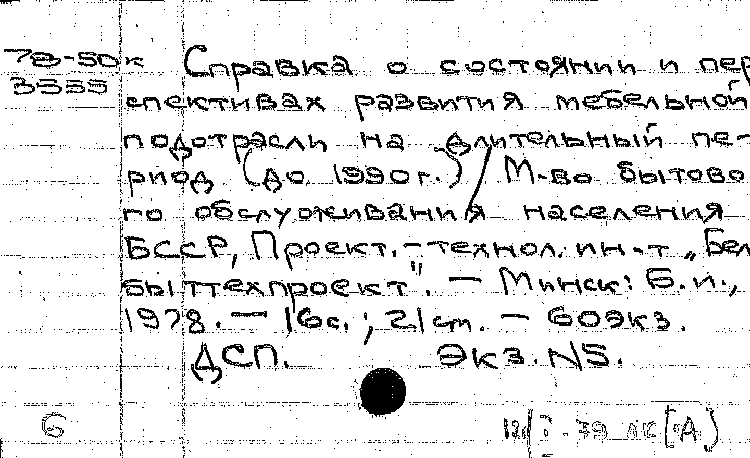 78-50к Справка о состоянии и пер
3555 спективах развития мебельной
подотрасли на длительный пе-
риод (до 1990 г.) / М-во бытово
го обслуживания населения
БССР, Проект.-технол. ин-т „Бел
быттехпроект". — Минск: Б.и.,
1978. — 16с.; 21см. — 60экз.
ДСП. Экз. N5.
6